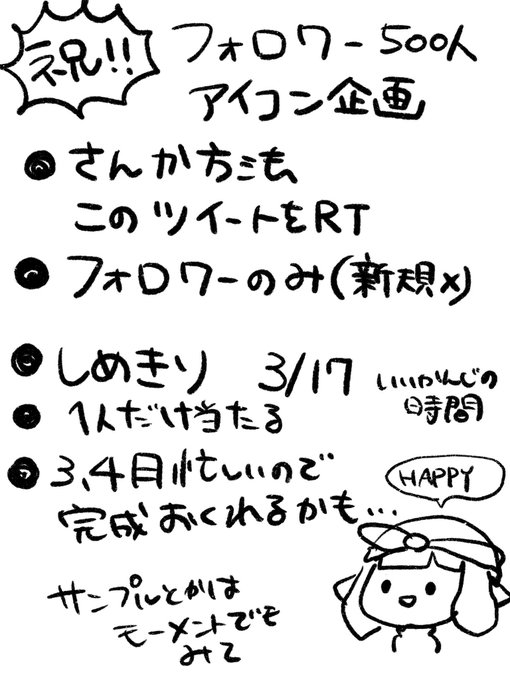 祝!!
フォロワー500人
アイコン企画
さんか方法
このツイートをRT
フォロワーのみ(新規×)
しめきり 3/17 いいかんじの
時間
1人だけ当たる
3、4月忙しいので
完成おくれるかも…
HAPPY
サンプルとかは
モーメントでも
みて